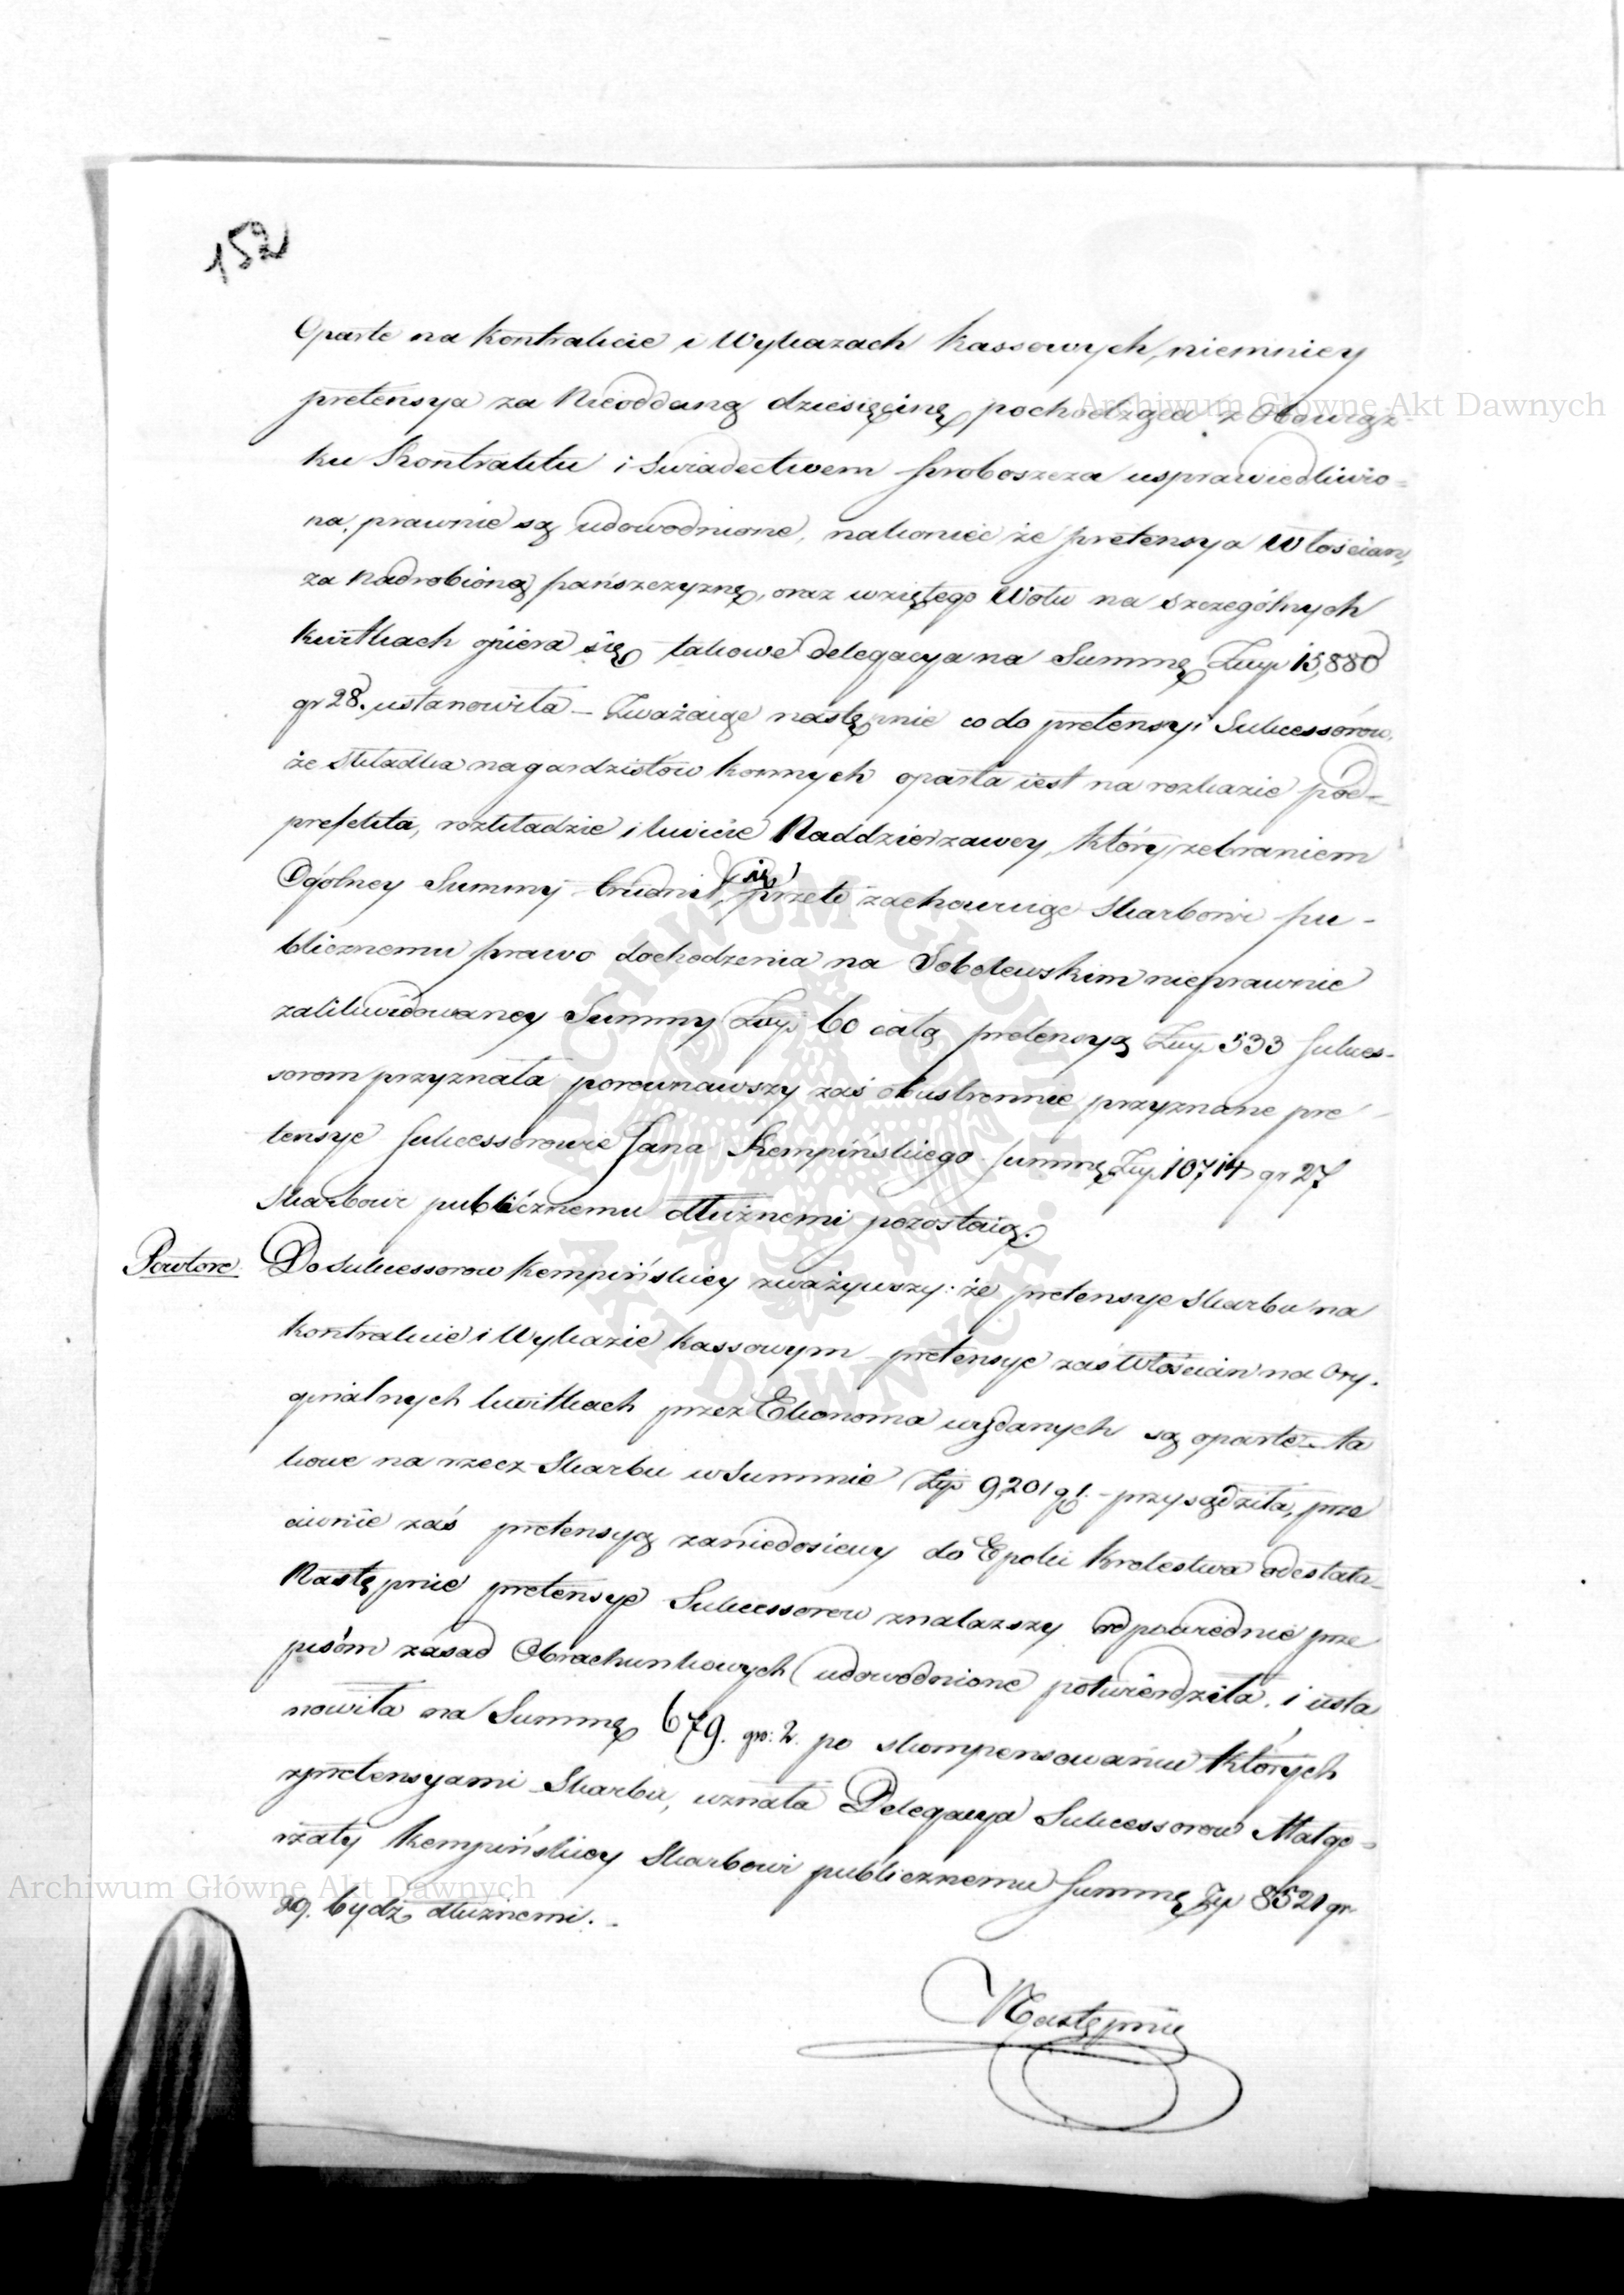 152
Oparte na Kontrakcie i Wykazach Kassowych, niemniey
pretensya za Nieoddaną dziesięcinę pochodząca z Obowiąz-
ku Kontraktu i Swiadectwem Proboszcza usprawiedliwio-
na, prawnie są udowodnione, nakoniec że pretensya Włościan,
za Nadrobioną pańszczyznę, oraz wziętego Wołu na szczególnych
kwitkach opiera się takowe delegacya na Summę Złłp 15,880
gr 28. ustanowiła – Zważaiąc następnie co do pretensyi Sukcessórow,
że składka na gardzistów konnych oparta iest na rozkazie pod-
prefekta, rozkładzie i kwicie Naddzierżawcy, który zebraniem
Ogólney Summy trudnił się, przeto zachowuiąc Skarbowi pu-
blicznemu prawo dochodzenia na Sobolewskim nieprawnie
zalikwidowaney Summy Złłp 60 całą pretensyą Złłp 533 Sukces-
sorom przyznała porownawszy zaś obustronnie przyznane pre-
tensye Sukcessorowie Jana Kempińskiego Summę Złłp 10714 gr 27
Skarbowi publicznemu dłużnemi pozostaią.
Powtore. Do Sukcessorow Kempińskiey zważywszy: że pretensye Skarbu na
Kontrakcie i Wykazie Kassowym pretensye zaś Włościan na Ory-
ginalnych kwitkach przez Ekonoma wydanych są oparte – ta
kowe na rzecz Skarbu w Summie Złp 9,201 g 1. – przysądziła, prze
ciwnie zaś pretensyą zaniedosiewy do Epoki Krolestwa odesłała –
Następnie pretensye Sukcessorow znalazszy odpowiednie prze
pisom zasad Obrachunkowych udowodnione potwierdziła. i usta
nowiła na Summę 679. gr: 2. po skompensowaniu których
z pretensyami Skarbu, uznała Delegacya Sukcessorow Małgo-
rzaty Kempińskiey Skarbowi publicznemu Summę Złp 8521 gr
29. bydź dłużnemi. –
Następnie
Archiwum Główne Akt Dawnych
Archiwum Główne Akt Dawnych
ARCHIWUM GŁÓWNE AKT DAWNYCH